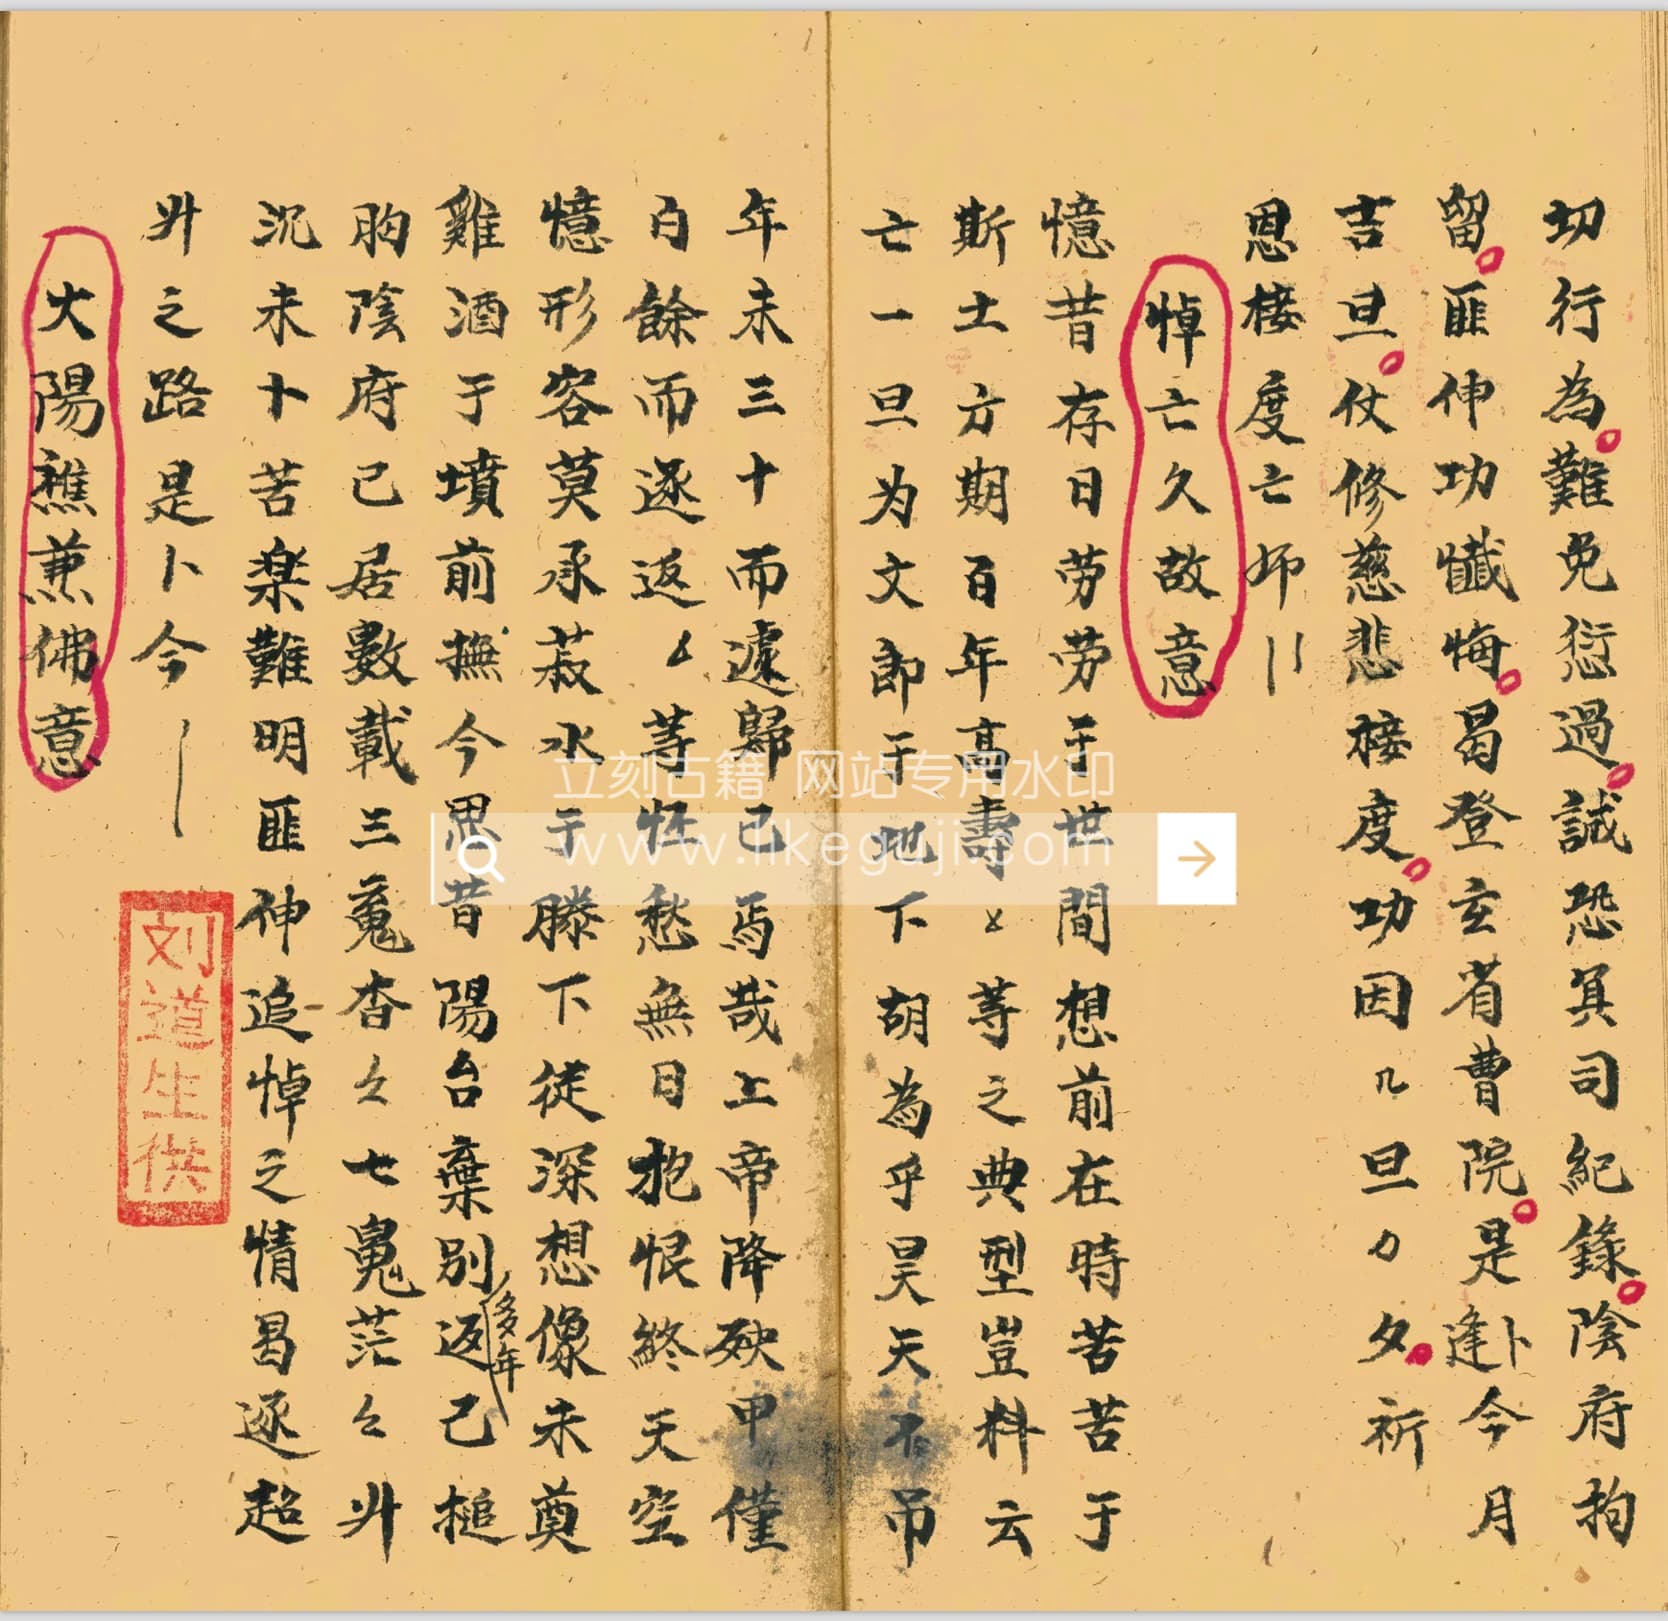 切行為難免愆過誠恐冥司紀錄陰府拘
留匪伸功懺悔曷登玄省曹院是逢卜今月
吉旦仗修慈悲接度功因几旦夕祈
恩接度亡师
悼亡久故意
憶昔存日劳劳于世間想前在時苦苦于
斯土方期百年高壽等之典型豈料云
亡一旦为文郎于地下胡為乎昊天不吊
年未三十而遽歸已焉哉上帝降殃甲僅
百餘而逐返等怔愁無日抱恨終天空
憶形容莫承菽水于膝下徒深想像未奠
雞酒于墳前撫今思昔陽台棄別返已槌
多年
胸陰府已居數載三䰟杳々七䰟茫々升
沉未卜苦楽難明匪伸追悼之情曷逐超
升之路是卜今
大陽醮兼佛意
刘道生供
立刻古籍 网站专用水印
www.likeguji.com